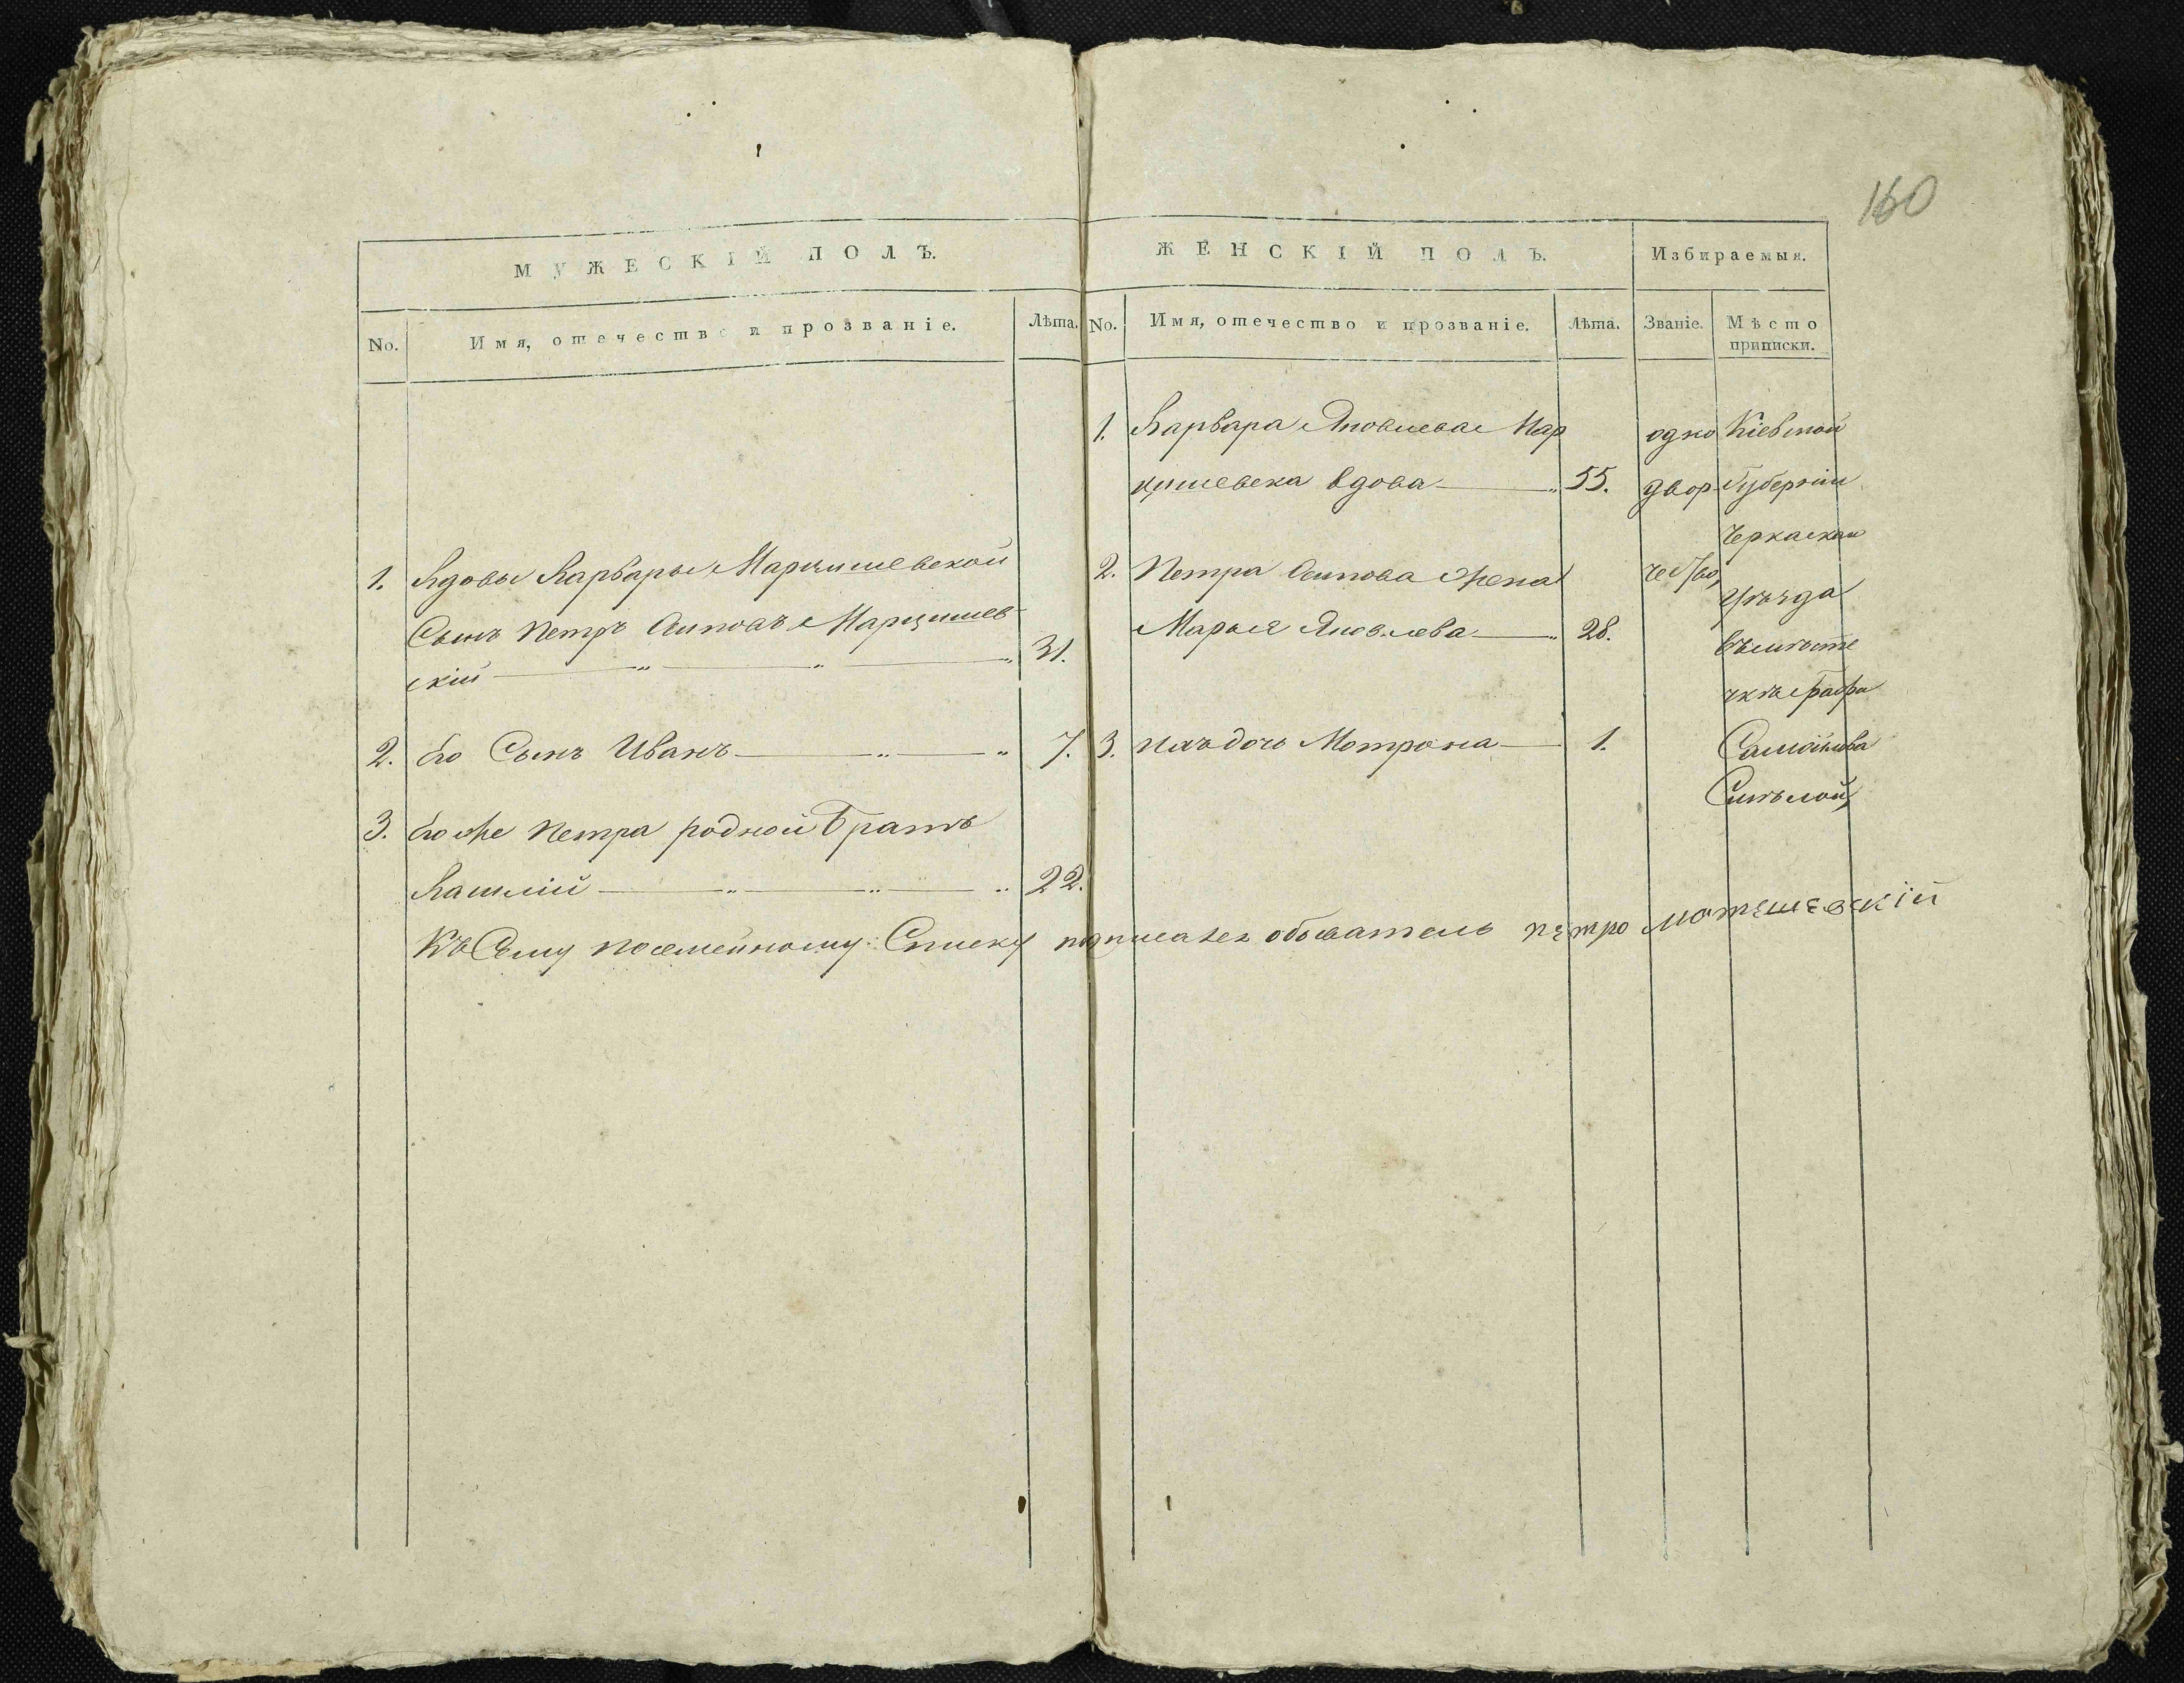 160
МУЖЕСКІЙ ПОЛЪ.
No.
Имя, отечество и прозваніе.
Лѣта.
1. Вдовы Варвары Марцишевской
Сынъ Петръ Осиповъ Марцишев
скій 31.
2. Его Сынъ Иванъ 7.
3. Его же Петра родной Братъ
Василій 22.
ЖЕНСКІЙ ПОЛЪ.
Избираемыя.
No.
Имя, отечество и прозваніе.
Лѣта.
Званіе.
Мѣсто
приписки.
1. Варвара Яковлева Мар
цишевска вдова 55.
2. Петра Осипова жена
Марья Яковлева 28.
3. Ихъ дочь Мотрона 1.
одно
двор
чество,
Кіевской
Губерніи
Черкаскаго
уѣзда
въ мѣсте
чкѣ Графа
Самойлова
Смѣлой,
Къ Сему посемейному Списку подписался обыватель петро матешевскій